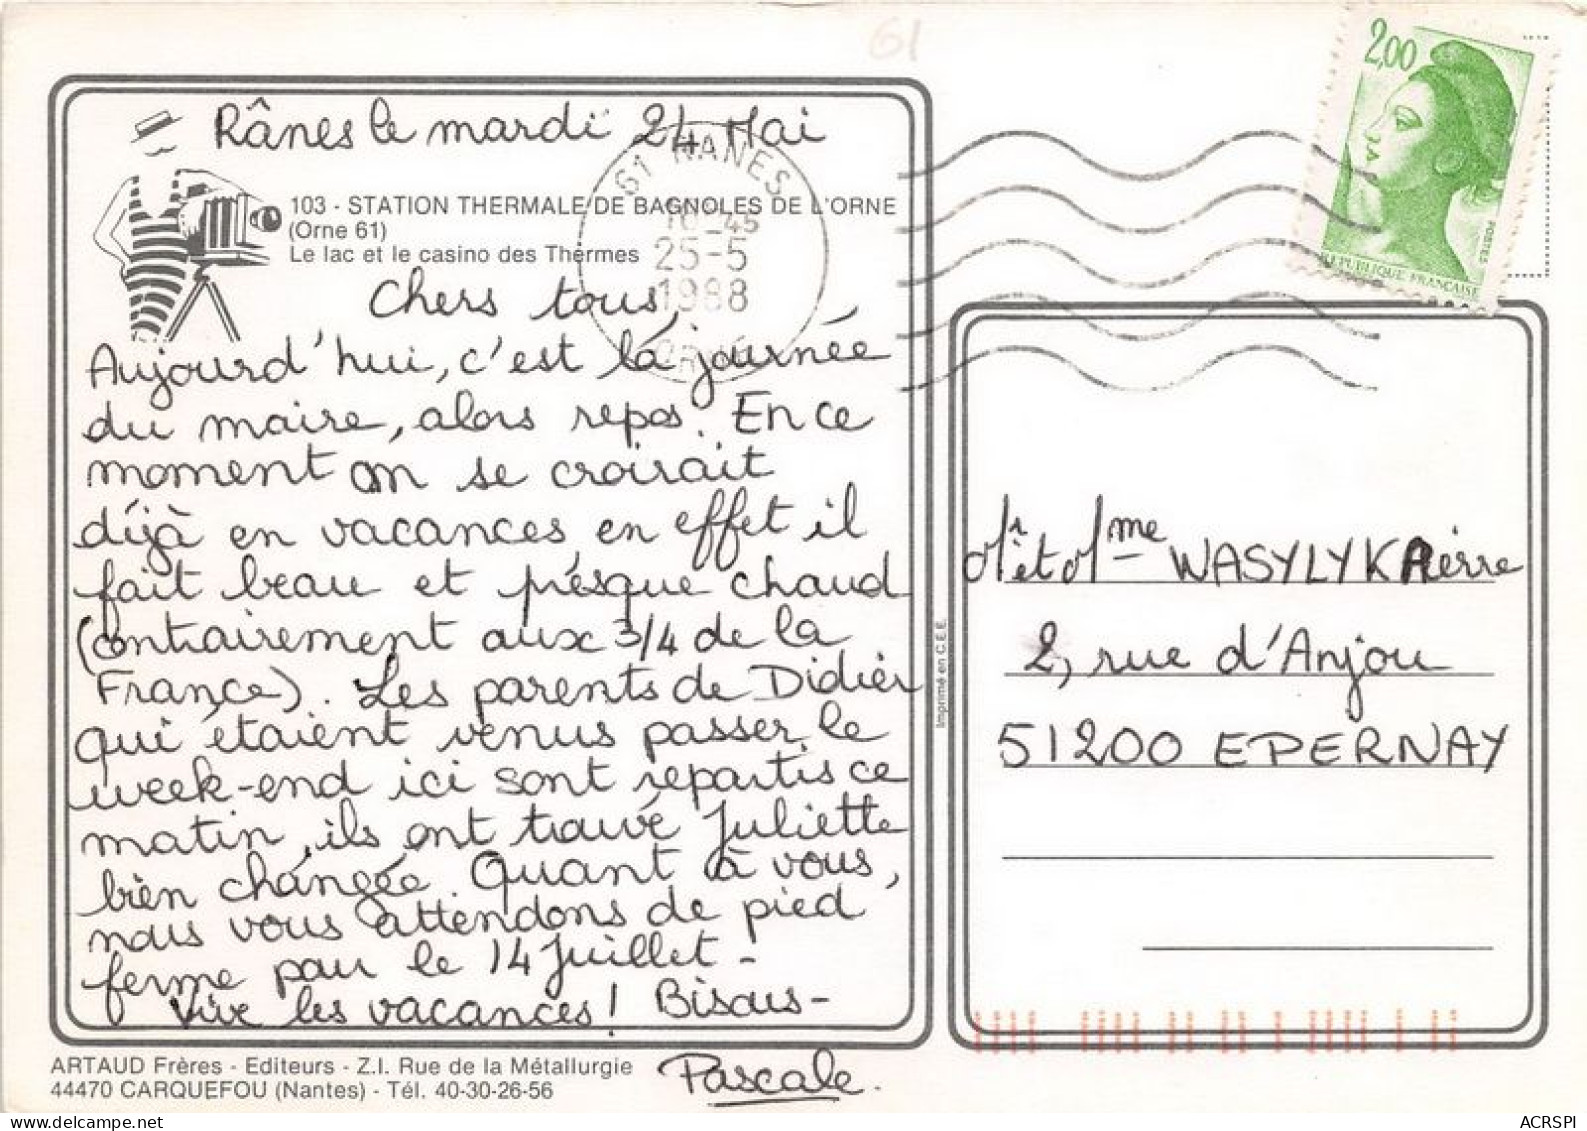 61
2,00
POSTES
REPUBLIQUE FRANCAISE
Rânes le mardi 24 Mai
61 RANES
16-45
25-5
1988
ORNE
103 - STATION THERMALE DE BAGNOLES DE L'ORNE
(Orne 61)
Le lac et le casino des Thermes
Chers tous,
Aujourd'hui, c'est la journée
du maire, alors repos. En ce
moment on se croirait
déjà en vacances, en effet il
fait beau et présque chaud
(contrairement aux 3/4 de la
France). Les parents de Didier
qui étaient venus passer le
week-end ici sont repartis ce
matin, ils ont trouvé Juliette
bien changée. Quant à vous,
nous vous attendons de pied
ferme pour le 14 Juillet -
Vive les vacances! Bisous-
Pascale.
Mr et Mme WASYLYK Pierre
2, rue d'Anjou
51200 EPERNAY
Imprimé en C.E.E.
ARTAUD Frères - Editeurs - Z.I. Rue de la Métallurgie
44470 CARQUEFOU (Nantes) - Tél. 40-30-26-56
ACRSPI